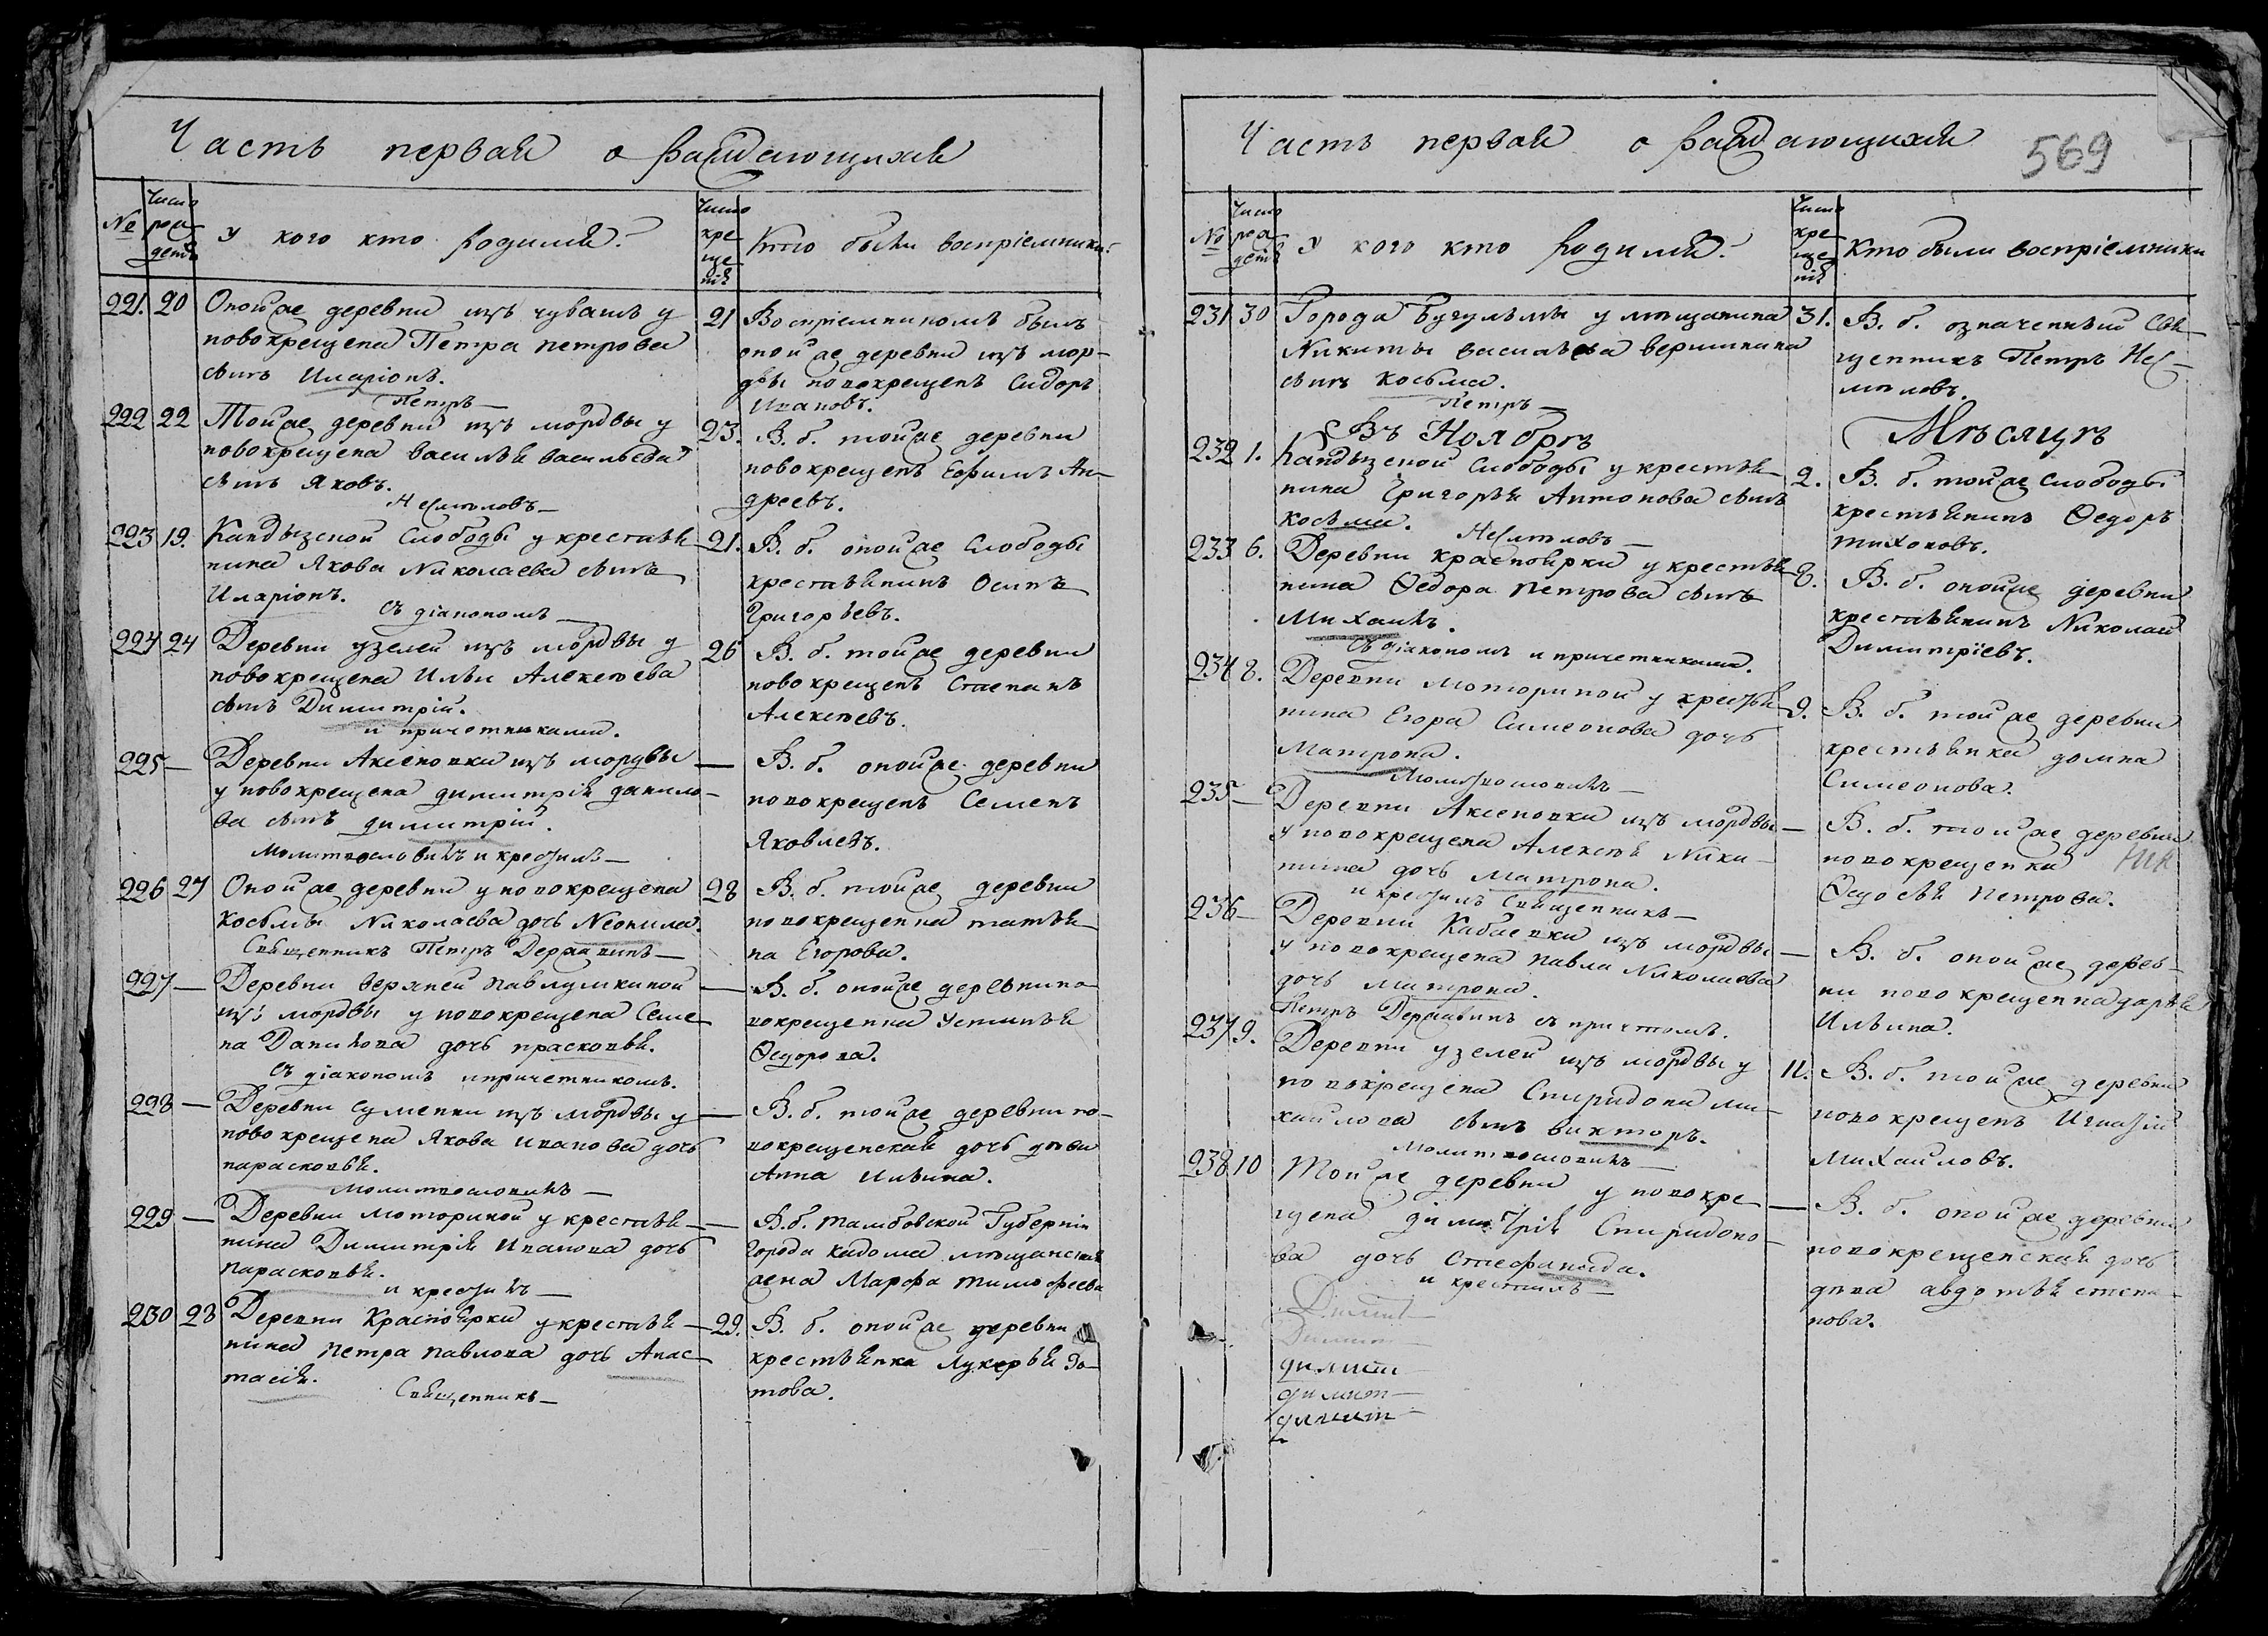 Часть первая о раждающихся
№
Число
рож
дені
У кого кто родился?
Число
кре
ще
нія
Кто были воспріемники?
221. 20 Оной же деревни изъ чувашъ у
новокрещена Петра петрова
сынъ Иларіонъ.
Петръ
21 Воспріемникомъ былъ
оной же деревни изъ мор-
двы новокрещенъ Сидоръ
Ивановъ.
222 22 Той же деревни изъ мордвы у
новокрещена василья васильева
сынъ Яковъ.
Несмѣловъ
23. В. б. той же деревни
новокрещенъ Ефимъ Ан-
дреевъ.
223 19. Кандызской Слободы у крестья
нина Якова Николаева сынъ
Иларіонъ.
съ діакономъ
21. В. б. оной же слободы
крестьянинъ Осипъ
Григорьевъ.
224 24 Деревни узелей изъ мордвы у
новокрещена Ильи Алексѣева
сынъ Димитрій.
и причетниками.
26 В. б. той же деревни
новокрещенъ Степанъ
Алексѣевъ.
225 — Деревни Аксеновки изъ мордвы
у новокрещена димитрія данило-
ва сынъ димитрій.
молитвословилъ и крестилъ
— В. б. оной же деревни
новокрещенъ Семенъ
Яковлевъ.
226 27 Оной же деревни у новокрещена
косьмы Николаева дочь Неонила.
Священникъ Петръ Державинъ
28 В. б. той же деревни
новокрещенка татья
на Егорова.
227 — Деревни верхней павлушкиной
изъ мордвы у новокрещена Семе
на Данилова дочь прасковья.
съ діакономъ и причетникомъ.
— В. б. оной же деревни но-
вокрещенка Устинья
Ѳедорова.
228 — Деревни суменки изъ мордвы у
новокрещена Якова иванова дочь
парасковья.
молитвословилъ
— В. б. той же деревни но-
вокрещенская дочь дѣва
Анна Ильина.
229 — Деревни моториной у крестья
нина Димитрія Иванова дочь
Парасковья.
и крестилъ
— В. б. тамбовской Губерніи
города кадома мѣщанская
жена Марфа тимофеева
230 28 Деревни Красноярки у крестья
нина петра павлова дочь Анас
тасія.
Священникъ
29. В. б. оной же деревни
крестьянка Лукерья Зо-
това.
Часть первая о раждающихся
569
№
Число
рож
дені
У кого кто родился?
Число
кре
ще
нія
Кто были воспріемники
231 30 Города Бугульмы у мѣщанина
Никиты васильева вершинина
сынъ косьма.
Петръ
31. В. б. означенный Свя
щенникъ Петръ Нес-
мѣловъ.
Въ Ноябрѣ Мѣсяцѣ
232 1. Кандызской Слободы у крестья
нина Григорья Антонова сынъ
косьма.
Несмѣловъ
2. В. б. той же слободы
крестьянинъ Ѳедоръ
тихоновъ.
233 6. Деревни красноярки у крестья
нина Ѳедора петрова сынъ
Михаилъ.
съ діакономъ и причетниками.
8. В. б. оной же деревни
крестьянинъ Николай
Димитріевъ.
234 8. Деревни моториной у крестья
нина Егора Симеонова дочь
Матрона.
молитвословилъ
9. В. б. той же деревни
крестьянка домна
Симеонова.
235 — Деревни Аксеновки изъ мордвы
у новокрещена Алексѣя Ники-
тина дочь матрона.
и крестилъ Священникъ
— В. б. той же деревни
новокрещенка
Ѳедосья Петрова.
236 — Деревни Кабаевки изъ мордвы
у новокрещена павла Николаева
дочь матрона.
Петръ Державинъ съ причтомъ.
— В. б. оной же дерев-
ни новокрещенка дарья
Ильина.
237 9. Деревни узелей изъ мордвы у
новокрещена Спиридона ми-
хайлова сынъ викторъ.
молитвословилъ
11. В. б. той же деревни
новокрещенъ Игнатій
михайловъ.
238 10 Той же деревни у новокре
щена димитрія Спиридоно-
ва дочь Стефанида.
и крестилъ
— В. б. оной же деревни
новокрещенская дочь
дѣва авдотья степа-
нова.
Димит
Димит
димит
димит
димит